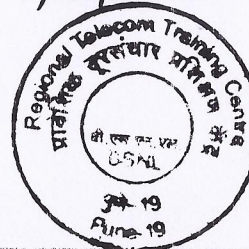 Regional Telecom Training Centre
प्रादेशिक दूरसंचार प्रशिक्षण केंद्र
बी.एस.एन.एल
BSNL
पुणे-19
Pune-19